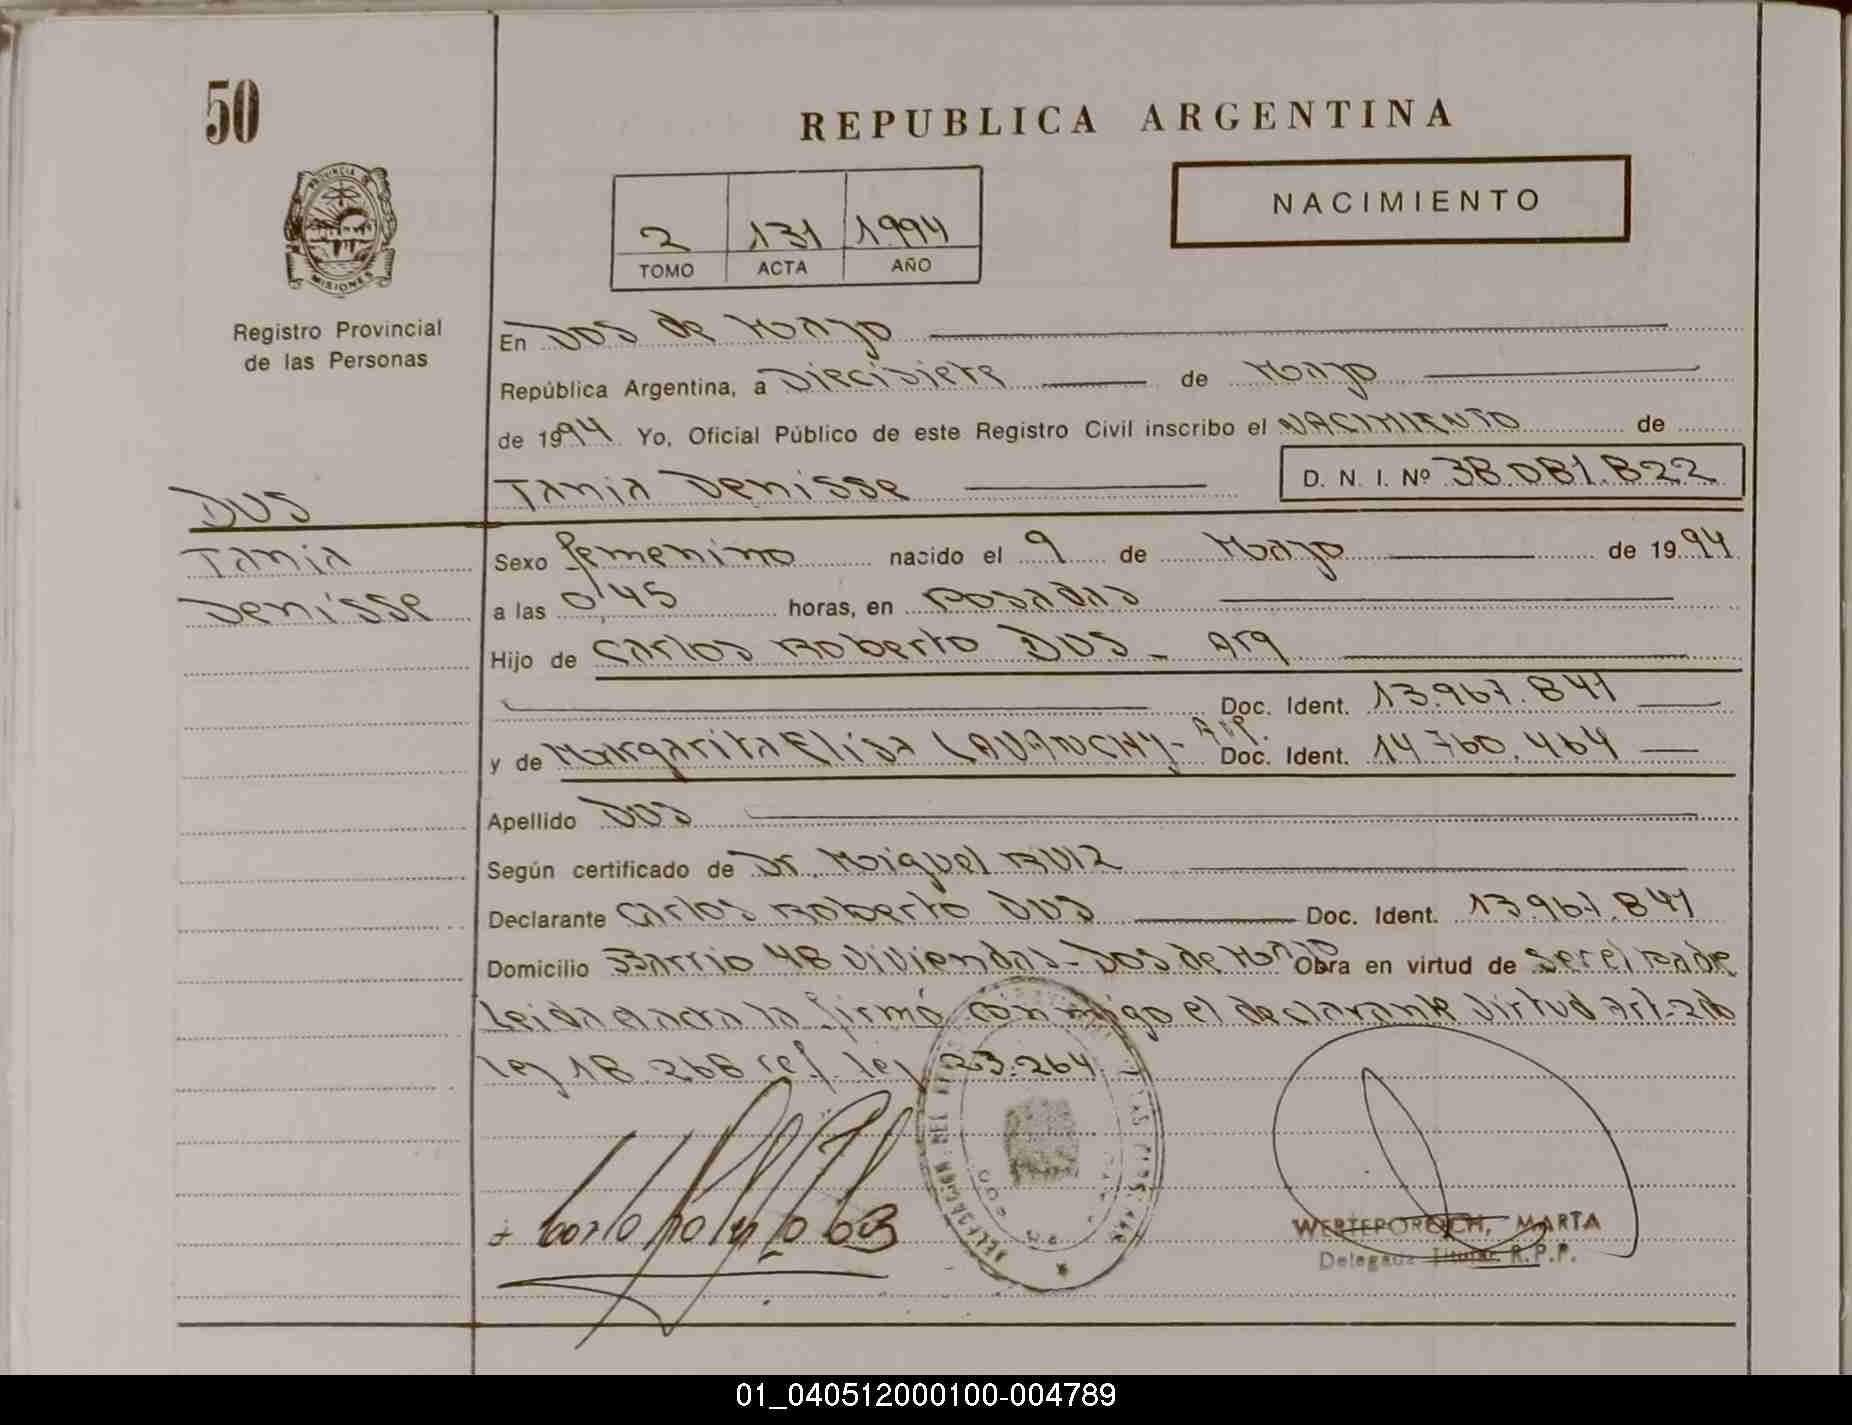 50
REPUBLICA ARGENTINA
NACIMIENTO
2 131 1994
TOMO ACTA AÑO
PROVINCIA DE
MISIONES
Registro Provincial
de las Personas
En Dos de Mayo
República Argentina, a Diecisiete de Mayo
de 1994 Yo, Oficial Público de este Registro Civil inscribo el NACIMIENTO de
Tania Denisse D. N. I. Nº 38.081.822
DUS
Tania
Denisse
Sexo femenino nacido el 9 de Mayo de 1994
a las 0'45 horas, en Posadas
Hijo de Carlos Roberto DUS - Arg
Doc. Ident. 13.967.841
y de Margarita Elisa LAVANCHY - Arg. Doc. Ident. 14.760.464
Apellido DUS
Según certificado de Dr. Miguel RUIZ
Declarante Carlos Roberto DUS Doc. Ident. 13.967.841
Domicilio Barrio 48 Viviendas - Dos de Mayo Obra en virtud de ser el padre
Leida el acta la firmó conmigo el declarante virtud Art. 26
ley 18.268 ref. ley 23.264
WERTEPOROCH, MARTA
Delegada Titular R.P.P.
01_040512000100-004789